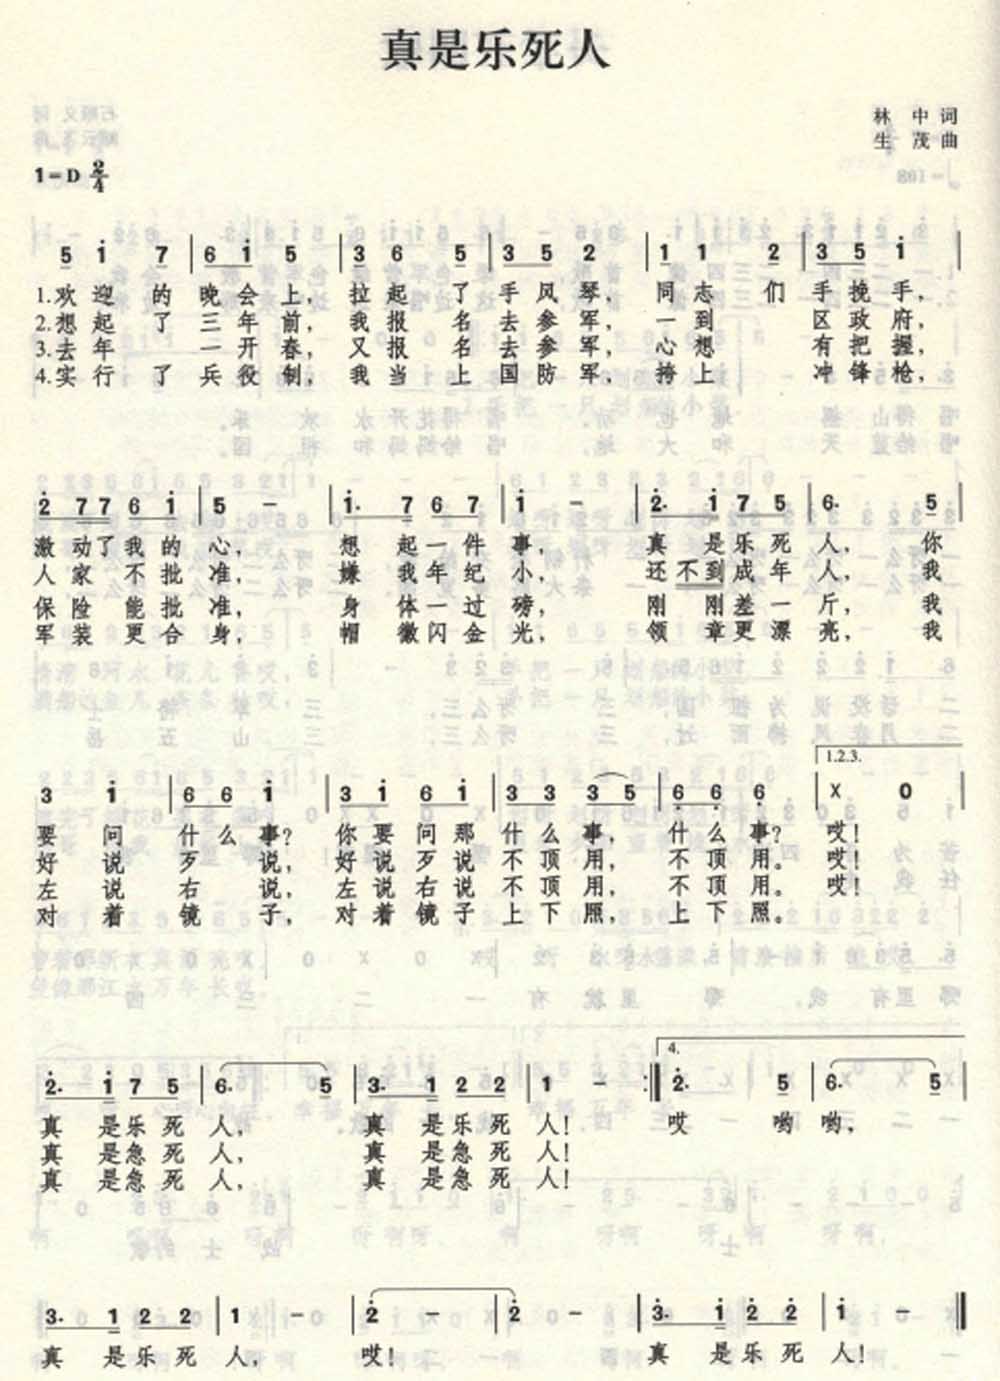 真是乐死人
林 中 词
生 茂 曲
1=D 2/4
5 i 7 | 6 i 5 | 3 6 5 | 3 5 2 | 1 1 2 | 3 5 i |
1.欢迎 的 晚会 上, 拉起 了 手风 琴, 同志 们 手挽 手,
2.想起 了 三年 前, 我报 名 去参 军, 一到 区政 府,
3.去年 一开 春, 又报 名 去参 军, 心想 有把 握,
4.实行 了 兵役 制, 我当 上 国防 军, 挎上 冲锋 枪,
2 77 6 i | 5 – | i. 7 6 7 | i – | 2. i 7 5 | 6. 5 |
激 动了 我 的 心, 想 起 一 件 事, 真 是乐 死 人, 你
人 家 不 批 准, 嫌 我 年 纪 小, 还 不到 成 年 人, 我
保 险 能 批 准, 身 体 一 过 磅, 刚 刚 差 一 斤, 我
军 装 更 合 身, 帽 徽 闪 金 光, 领 章 更 漂 亮, 我
1.2.3.
3 i | 6 6 i | 3 i 6 i | 3 3 3 5 | 6 6 6 | X 0 |
要 问 什 么 事? 你 要 问 那 什 么 事, 什 么 事? 哎!
好 说 歹 说, 好 说 歹 说 不 顶 用, 不 顶 用。 哎!
左 说 右 说, 左 说 右 说 不 顶 用, 不 顶 用。 哎!
对 着 镜 子, 对 着 镜 子 上 下 照, 上 下 照。
4.
2. i 7 5 | 6. 5 | 3. 1 2 2 | 1 – :| 2. 5 | 6. 5 |
真 是乐 死 人, 真 是乐 死 人! 哎 哟 哟,
真 是急 死 人, 真 是急 死 人!
真 是急 死 人, 真 是急 死 人!
3. 1 2 2 | 1 – | 2 – | 2 – | 3. i 2 2 | i – ‖
真 是乐 死 人, 哎! 真 是乐 死 人!